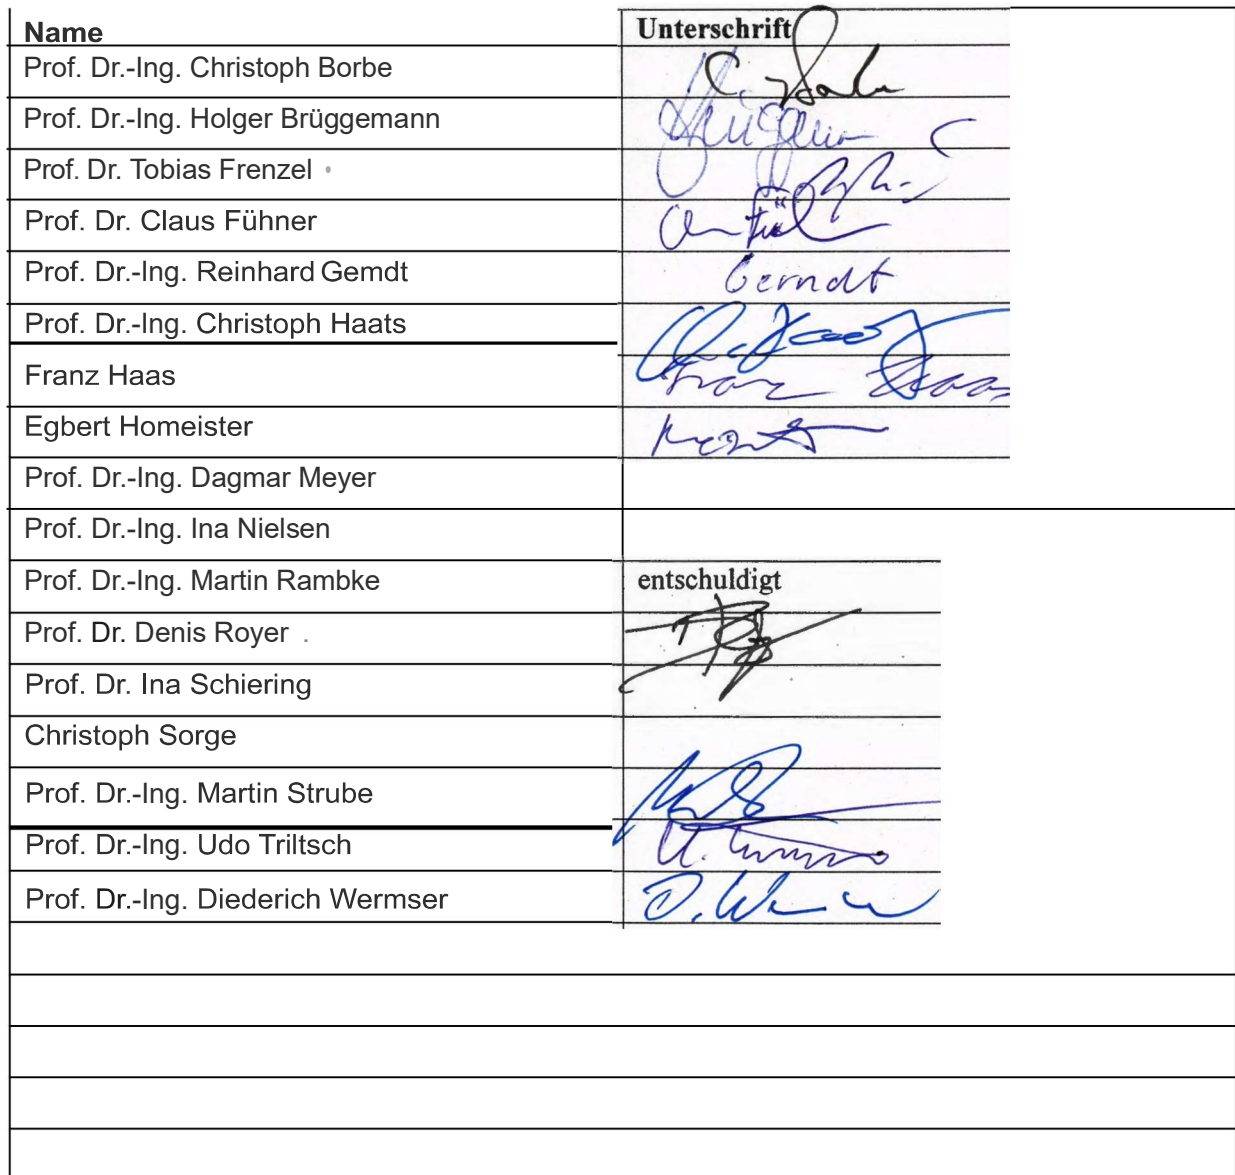 Name Unterschrift
Prof. Dr.-Ing. Christoph Borbe
Prof. Dr.-Ing. Holger Brüggemann
Prof. Dr. Tobias Frenzel
Prof. Dr. Claus Fühner
Prof. Dr.-Ing. Reinhard Gemdt Gerndt
Prof. Dr.-Ing. Christoph Haats
Franz Haas Franz Haas
Egbert Homeister
Prof. Dr.-Ing. Dagmar Meyer
Prof. Dr.-Ing. Ina Nielsen
Prof. Dr.-Ing. Martin Rambke entschuldigt
Prof. Dr. Denis Royer
Prof. Dr. Ina Schiering
Christoph Sorge
Prof. Dr.-Ing. Martin Strube
Prof. Dr.-Ing. Udo Triltsch
Prof. Dr.-Ing. Diederich Wermser